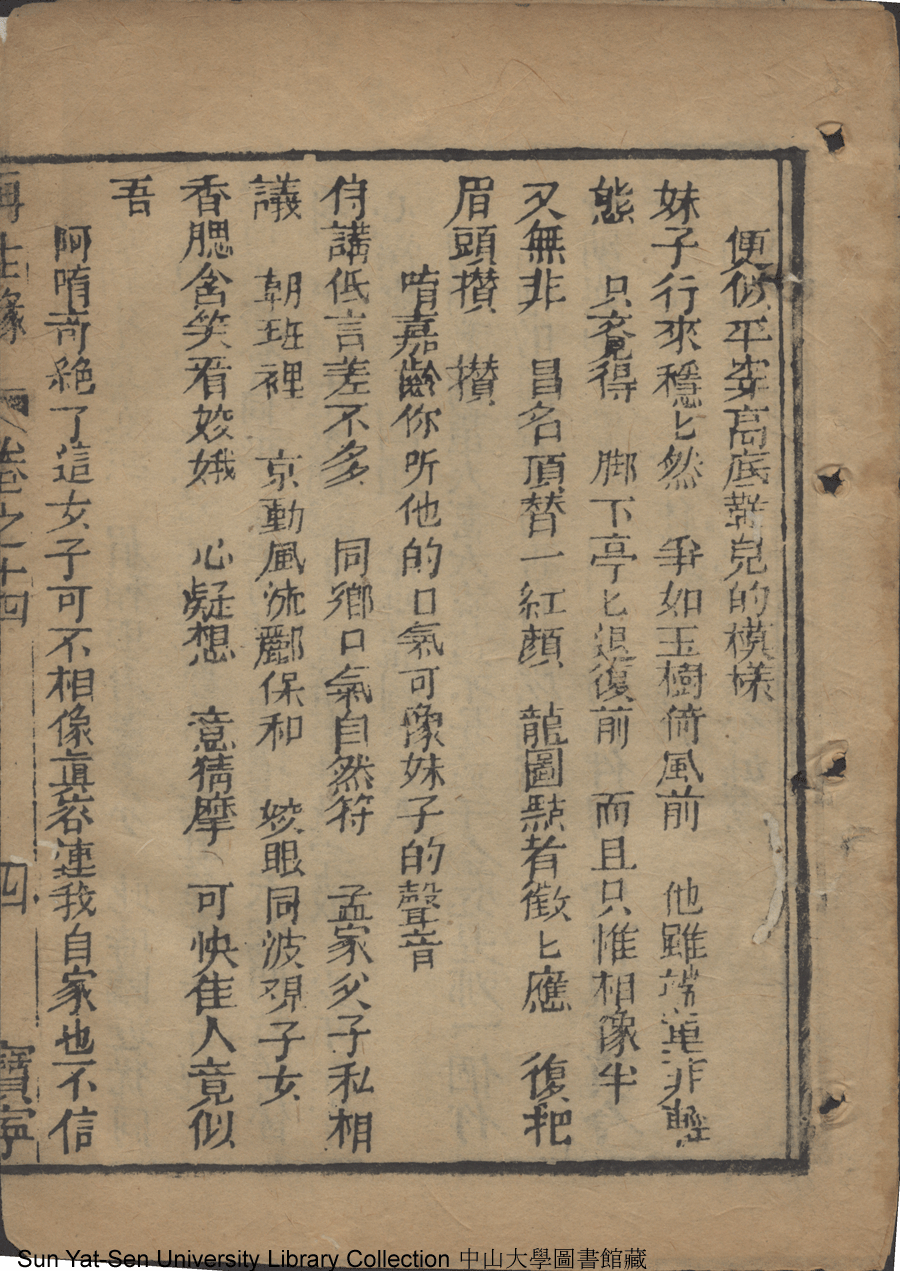 便似平安高底鞋兒的模樣
妹子行來穩匕然　爭如玉樹倚風前　他雖端重非輕
態　只覺得　脚下亭匕退復前　而且只惟相像半
又無非　昌名頂替一紅顏　龍圖點首微匕應　復把
眉頭攅一攅
唷嘉齡你听他的口氣可像妹子的聲音
侍講低言差不多　同鄉口氣自然符　孟家父子私相
議　朝班裡　京動風流酈保和　姣眼同波覌子女
香腮含笑看姣娥　心凝想　意猜摩　可怏佳人竟似
吾
阿唷奇絶了這女子可不相像眞容連我自家也不信
再生緣　卷之十四　四　寶寧
Sun Yat-Sen University Library Collection 中山大學圖書館藏